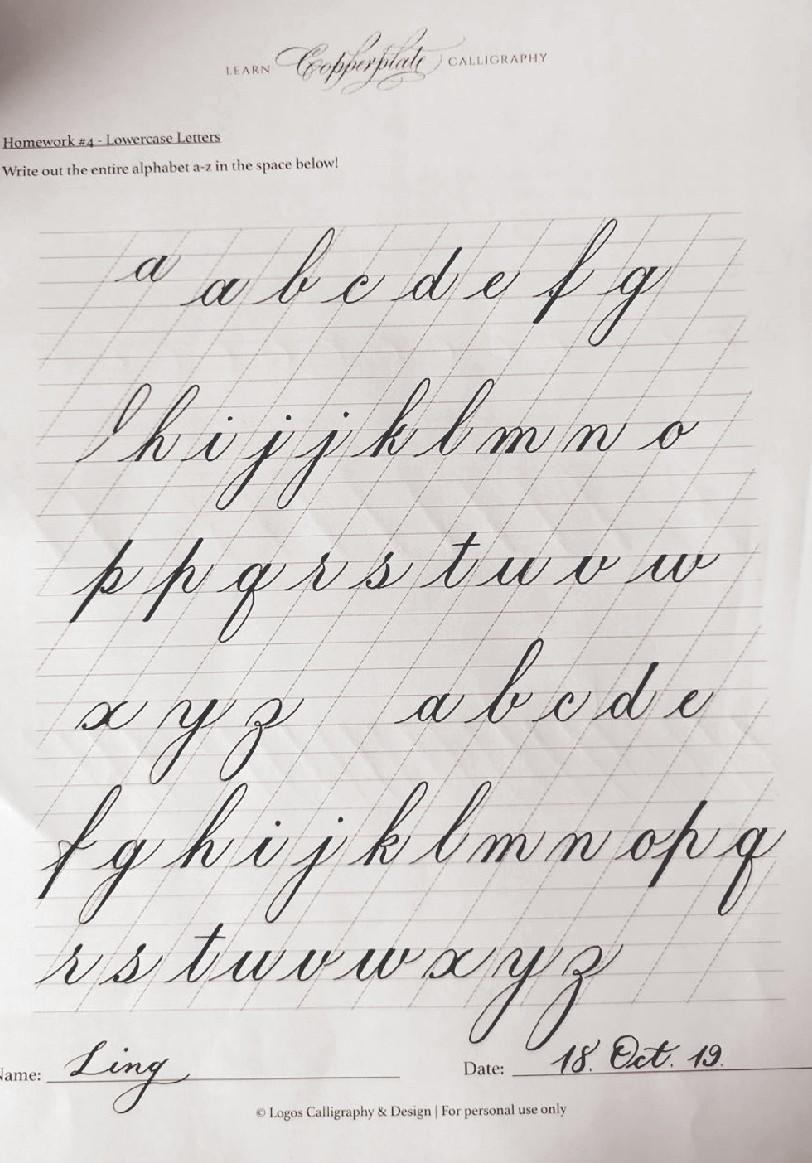 LEARN Copperplate CALLIGRAPHY
Homework #4 - Lowercase Letters
Write out the entire alphabet a-z in the space below!
a a b c d e f g
l h i j j k l m n o
p p q r s t u v w
x y z a b c d e
f g h i j k l m n o p q
r s t u v w x y z
Name: Ling Date: 18. Oct. 19.
© Logos Calligraphy & Design | For personal use only